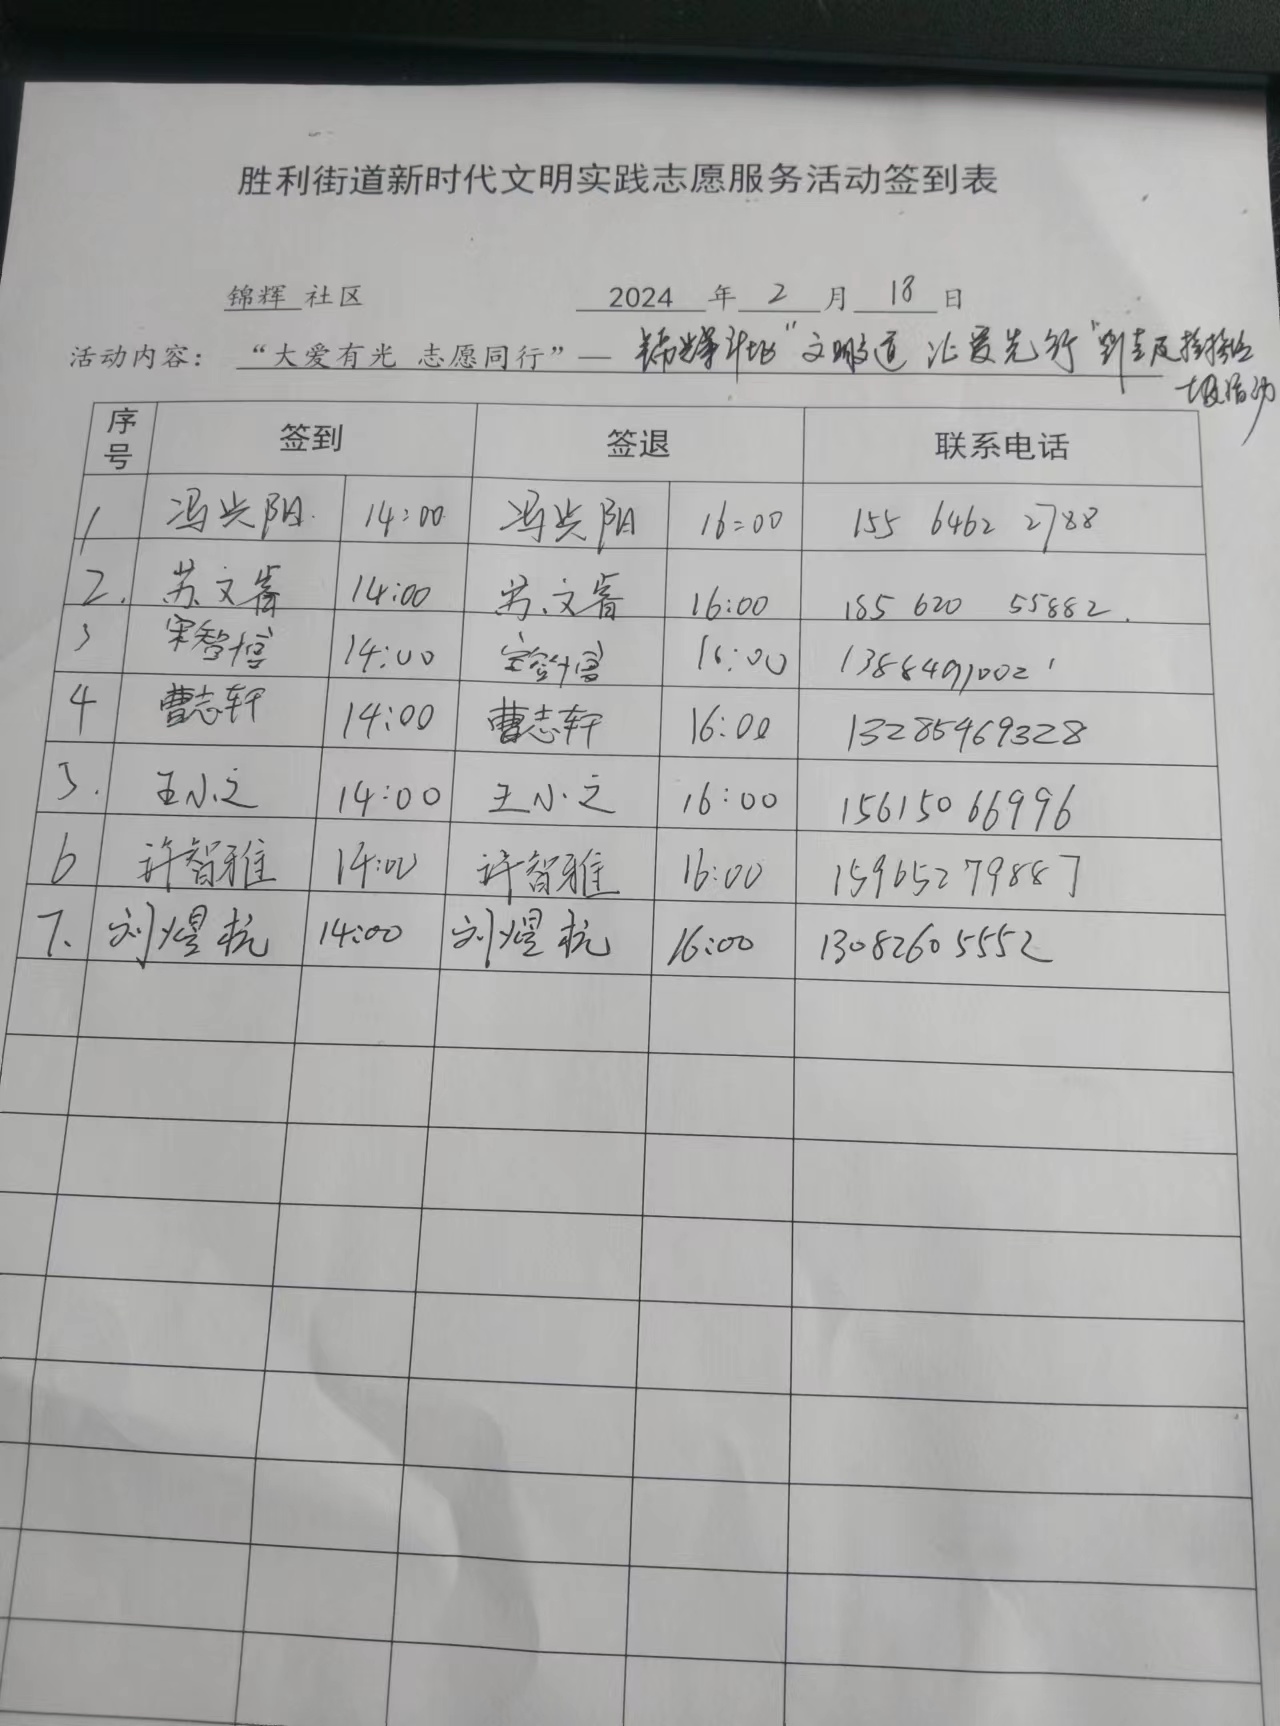 胜利街道新时代文明实践志愿服务活动签到表
锦辉 社区 2024 年 2 月 18 日
活动内容： “大爱有光 志愿同行”— 锦辉社区“文明 先行”
活动
序号 签到 签退 联系电话
1 冯兴阳 14:00 冯兴阳 16:00 155 6462 2788
2. 苏文睿 14:00 苏文睿 16:00 185 620 55882
3 宋智博 14:00 宋智博 16:00 13884091002
4 曹志轩 14:00 曹志轩 16:00 13285469328
5. 王小之 14:00 王小之 16:00 15615066996
6 许智雅 14:00 许智雅 16:00 15965279887
7. 刘煜杭 14:00 刘煜杭 16:00 13082605552